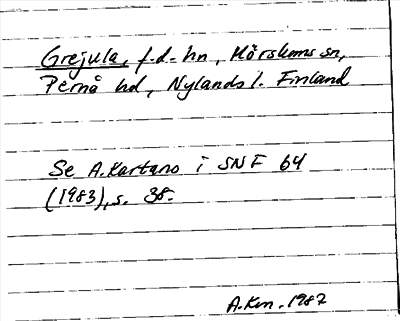 Grejula, f.d. hn, Mörskoms sn,
Pernå hd, Nylands l. Finland
Se A. Kartano i SNF 64
(1983), s. 38.
A.Kn. 1987